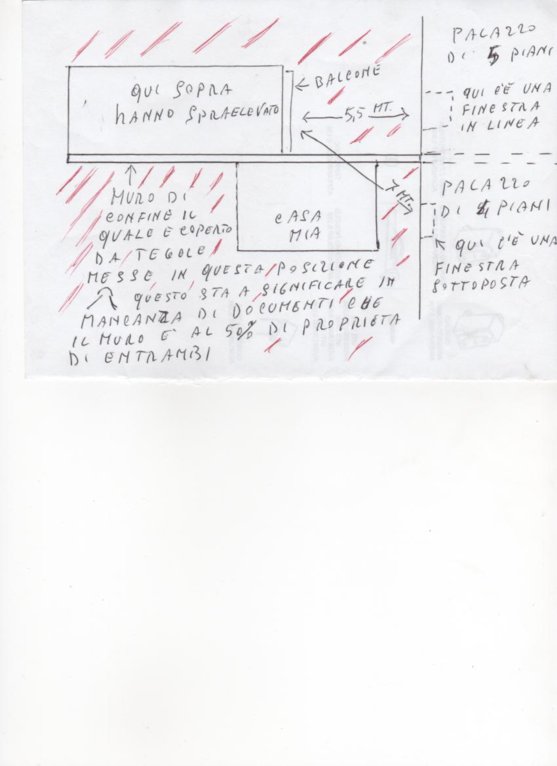 PALAZZO
DI 5 PIANI
QUI SOPRA
HANNO SPRAELEVATO
← BALCONE
5,5 MT.
QUI C'È UNA
FINESTRA
IN LINEA
7 MT.
PALAZZO
DI 4 PIANI
QUI C'È UNA
FINESTRA
SOTTOPOSTA
CASA
MIA
MURO DI
CONFINE IL
QUALE È COPERTO
DA TEGOLE
MESSE IN QUESTA POSIZIONE
QUESTO STA A SIGNIFICARE IN
MANCANZA DI DOCUMENTI CHE
IL MURO È AL 50% DI PROPRIETÀ
DI ENTRAMBI